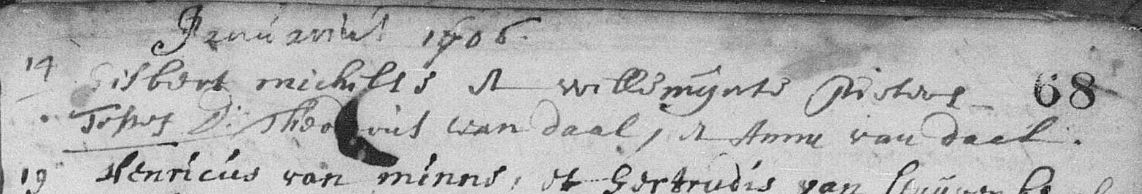 Januarius 1706.
14 Gisbert michills et willemijnte Pieters 68
Testes D: Theodorus van daal, et Anna van daal.
19 Henricus van minne, et Gertrudis van